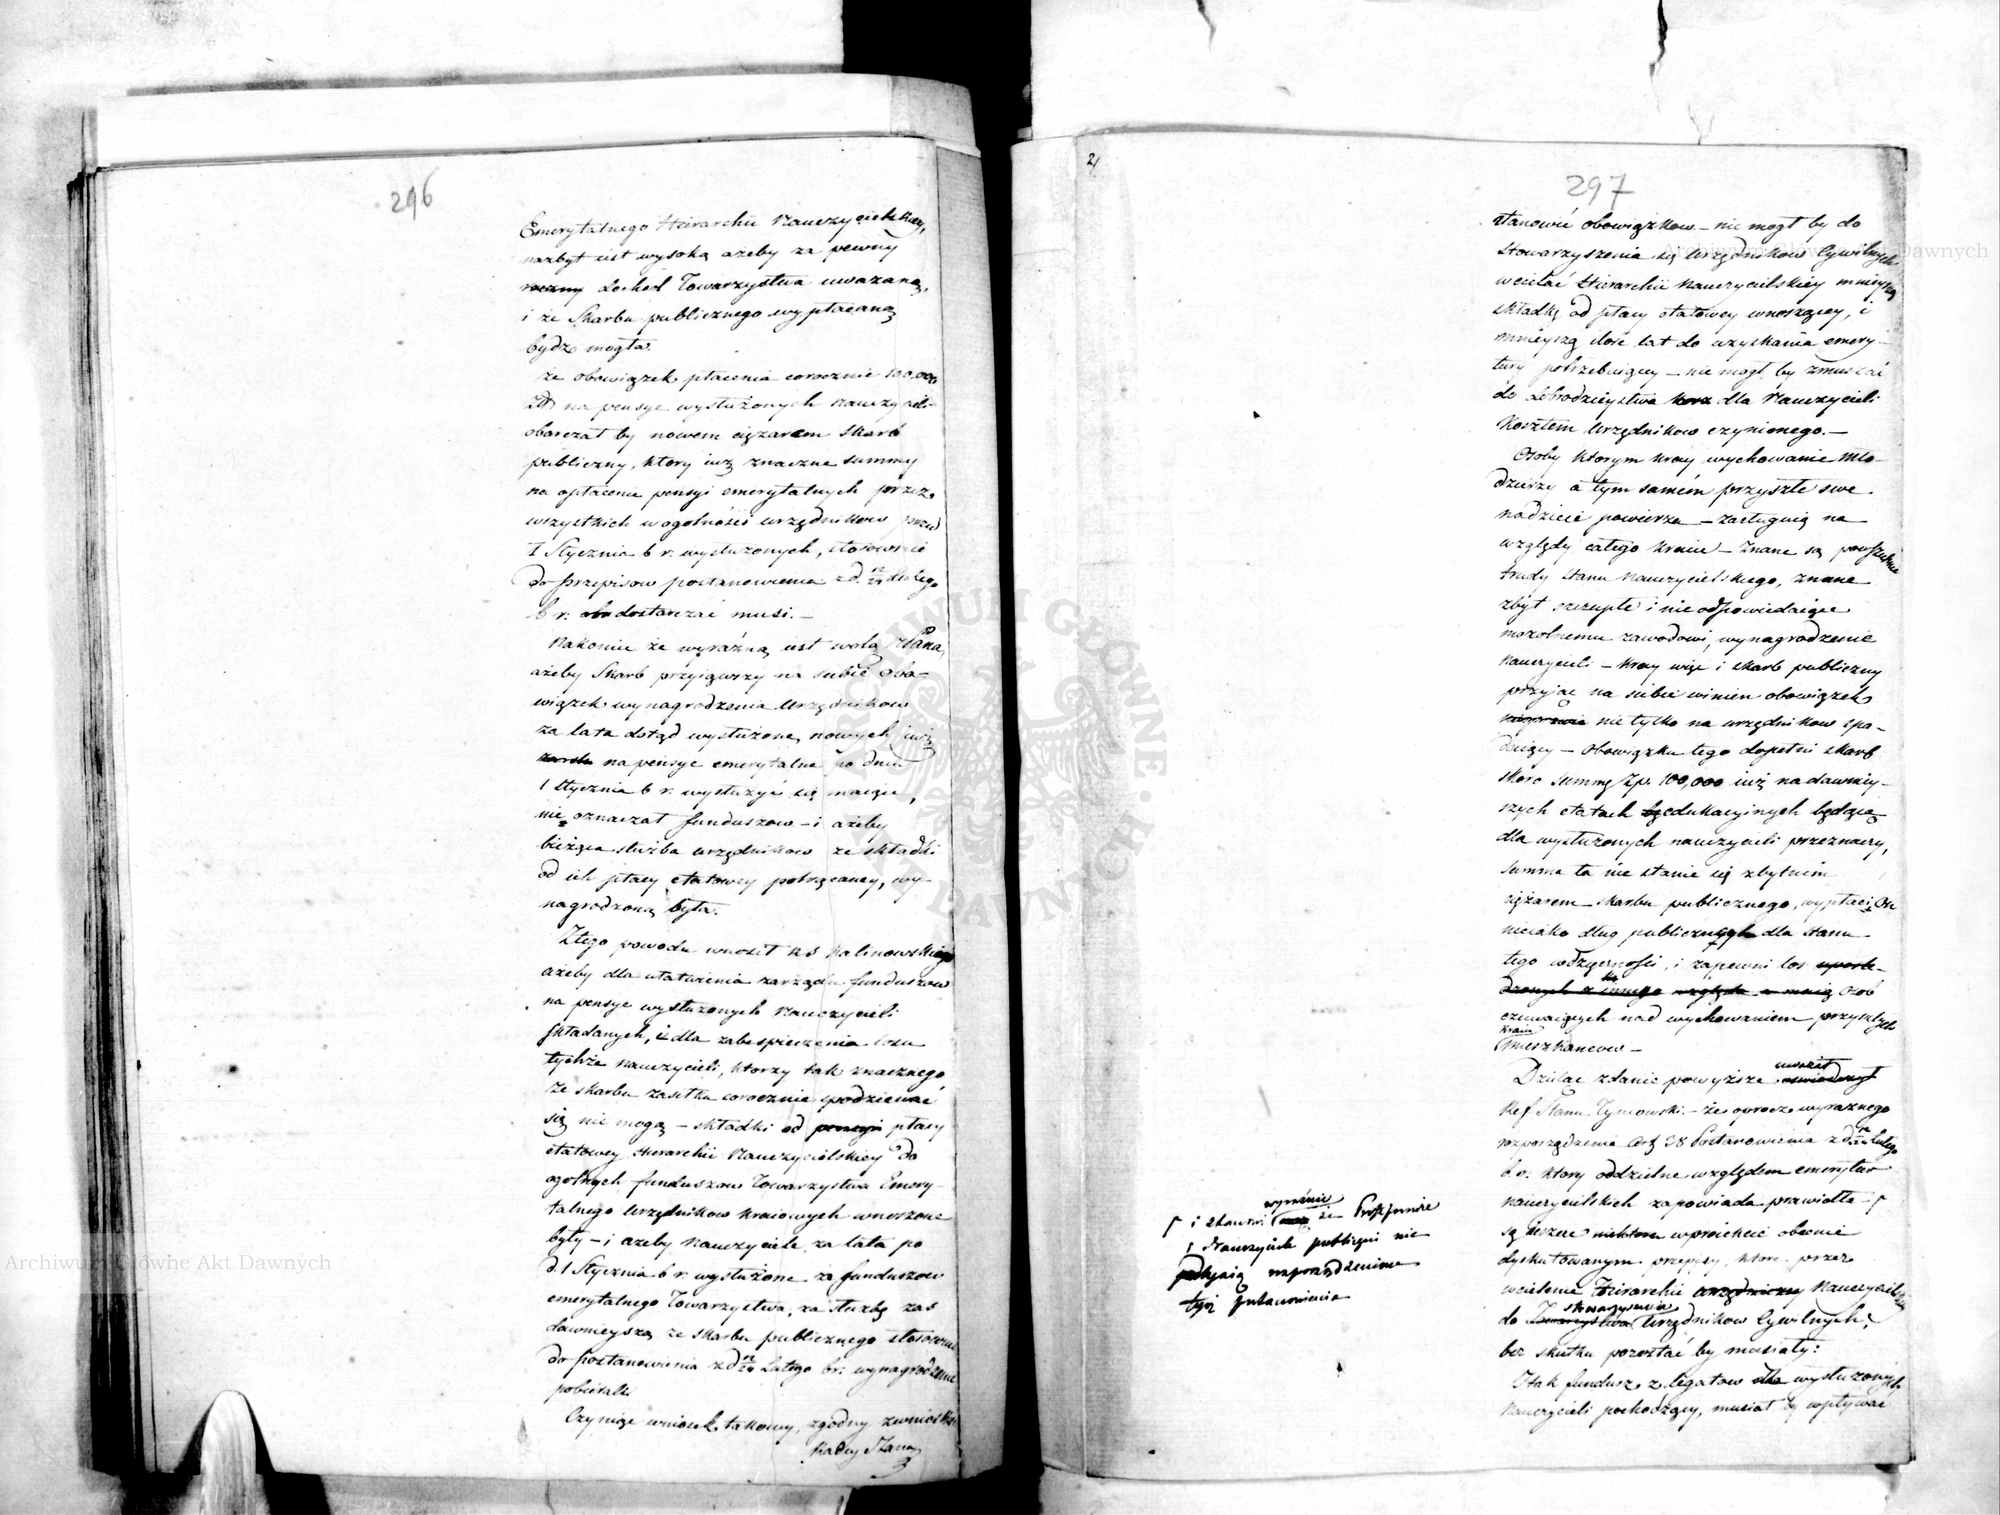 296
Emerytalnego Hierarchii Nauczycielskiey,
nazbyt iest wysoką ażeby za pewny
roczny dochod Towarzystwa uważaną,
i ze Skarbu publicznego wypłacaną
bydz mogła.
że obowiązek płacenia corocznie 100,000
Zł na pensye wysłużonych Nauczycieli
obarczał by nowem ciężarem Skarb
publiczny, ktory iuż znaczne summy
na opłacenie pensyi emerytalnych przez
wszystkich w ogolności urzędnikow przed
1 Stycznia b r. wysłużonych, stosownie
do przepisow postanowienia z d. 12/24 Lutego
b r. dostarczać musi. —
Nakoniec że wyraźną iest wolą Pana,
ażeby Skarb przyiąwszy na siebie obo-
wiązek wynagrodzenia Urzędnikow
za lata dotąd wysłużone, nowych iuż
na pensye emerytalne po dniu
1 Stycznia b r. wysłużyć się maiące,
nie oznaczał funduszow — i ażeby
bieżąca służba urzędnikow ze składki
od ich płacy etatowey potrącaney, wy-
nagrodzoną była.
Z tego powodu wnosił RS Kalinowski
ażeby dla ułatwienia zarządu funduszow
na pensye wysłużonych Nauczycieli
składanych, i dla zabespieczenia losu
tychże Nauczycieli, ktorzy tak znacznego
ze skarbu zasiłku corocznie spodziewać
się nie mogą — składki od pensyi płacy
etatowey Hierarchii Nauczycielskiey do
ogolnych funduszow Towarzystwa Emery-
talnego Urzędnikow Kraiowych wnoszone
były — i ażeby Nauczyciele za lata po
d. 1 Stycznia b r. wysłużone z funduszow
emerytalnego Towarzystwa, za służbę zaś
dawnieyszą ze skarbu publicznego stosownie
do postanowienia z d 12/24 Lutego br. wynagrodzenie
pobierali
Czyniąc wniosek takowy, zgodny z wnioskiem
Radcy Stanu
2/
297
stanowić obowiązkow — nie mogł by do
Stowarzyszenia się Urzędnikow Cywilnych
wcielać Hierarchii Nauczycielskiey mnieyszą
składkę od płacy etatowey wnoszącey, i
mnieyszą ilość lat do uzyskania emery-
tury potrzebuiącey — nie mogł by zmuszać
do dobrodzieystwa dla Nauczycieli
Kosztem Urzędnikow czynionego. —
Osoby ktorym kray wychowanie Mło-
dzieży a tym samem przyszłe swe
nadzieie powierza — zasługuią na
względy całego kraiu — Znane są powszechnie
trudy stanu Nauczycielskiego, znane
zbyt szczupłe i nie odpowiedaiące
mozolnemu zawodowi, wynagrodzenie
Nauczycieli — kray więc i skarb publiczny
przyiąć na siebie winien obowiązek
nie tylko na urzędnikow spa-
daiący — obowiązku tego dopełni skarb
skoro summę Zp. 100,000 iuż na dawniey-
szych etatach edukacyinych będącą
dla wysłużonych nauczycieli przeznaczy,
summa ta nie stanie się zbytnim
ciężarem skarbu publicznego, wypłaci on
nieiako dług publiczny dla stanu
tego wdzięczności, i zapewni los
względu osob
czuwaiących nad wychowaniem przyszłych
kraiu
mieszkancow —
Dzieląc zdanie powyższe wnosił
oświadczył
Ref Stanu Tymowski — że oprocz wyraznego
rozporządzenia Art 38 Postanowienia z d 12/24 Lutego
b. r. ktory oddzielne względem emerytur
nauczycielskich zapowiada prawidła — Γ
są ieszcze niektore w proiekcie obecnie
dyskutowanym przepisy, ktore przez
wcielenie Hierarchii urzędniczey Nauczycielskiey
stowarzyszenia
do Towarzystwa Urzędnikow Cywilnych,
bez skutku pozostać by musiały:
I tak fundusz z legatow dla wysłużonych
Nauczycieli pochodzący, musiał by wpływać
wyraźnie
Γ i stanowi że Professorowie
i Nauczyciele publiczni nie
podlegaią rozporządzeniom
tegoż postanowienia